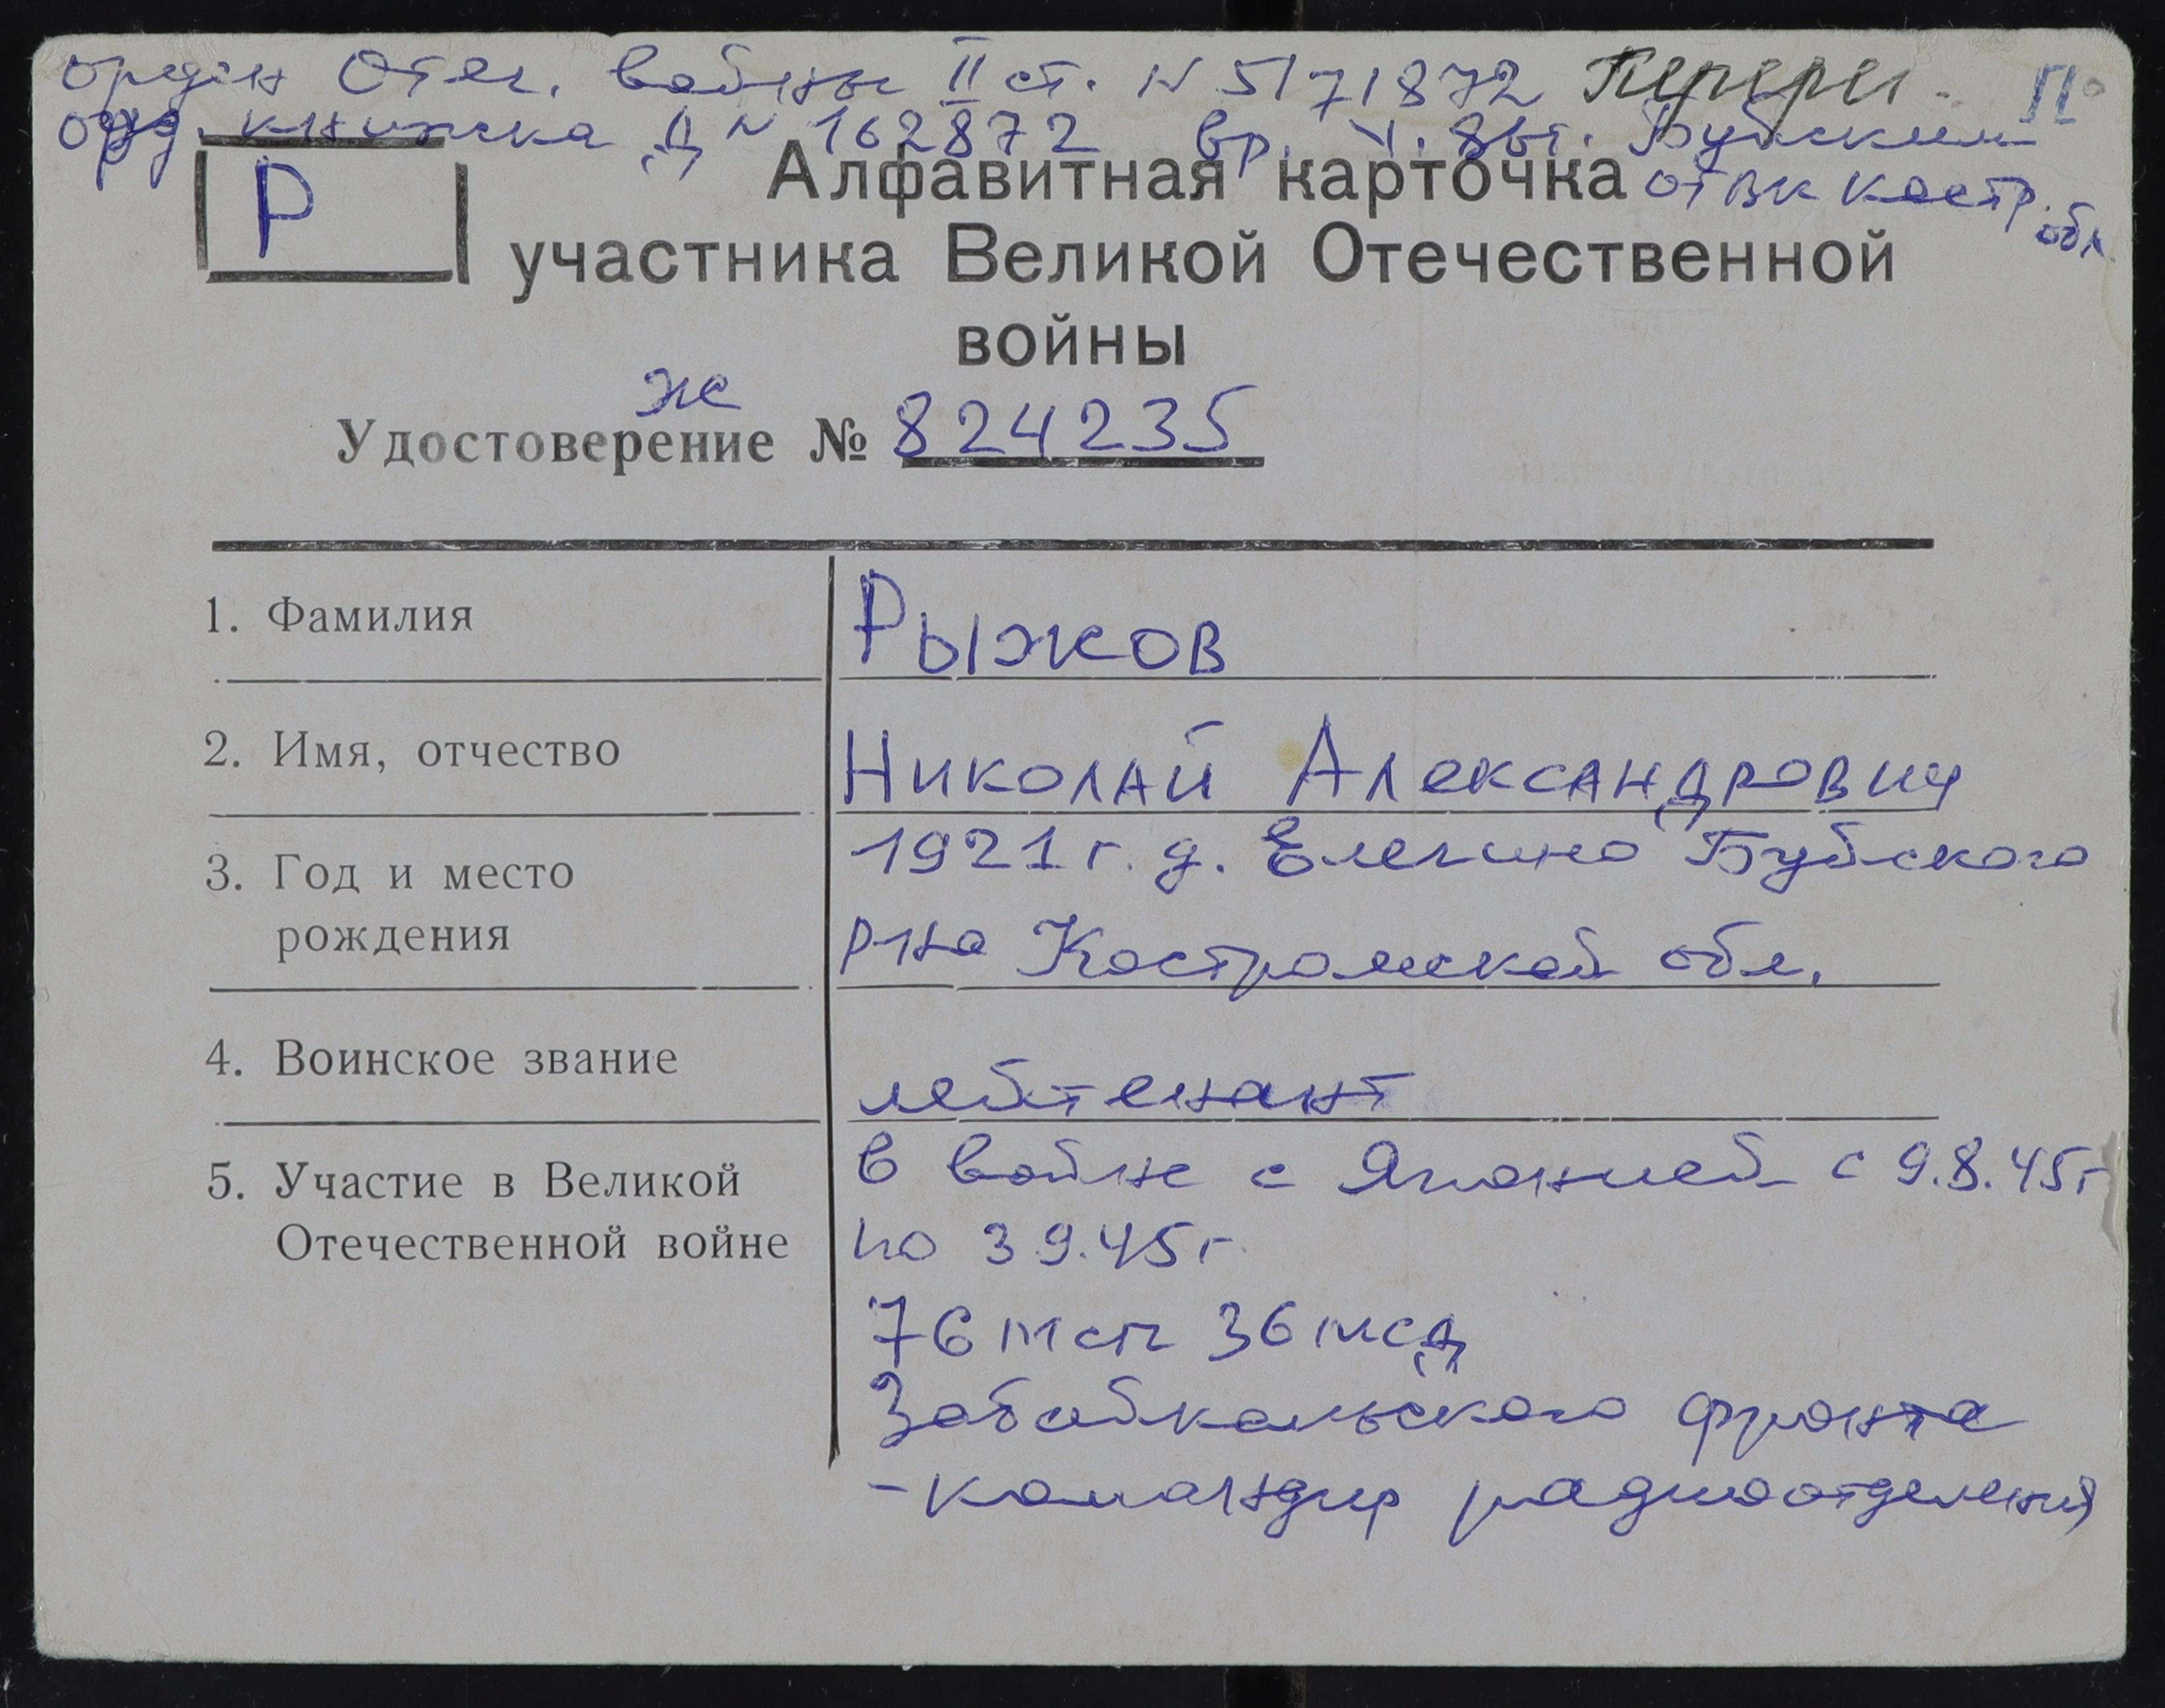 орден Отеч. войны II ст. N 5171872 Перерег. П°
орд. книжка Д N 162872 вр. V. 86г. Буйским
Р
Алфавитная карточка ОГВК Костр.
обл.
участника Великой Отечественной
войны
же
Удостоверение № 824235
1. Фамилия Рыжов
2. Имя, отчество Николай Александрович
3. Год и место 1921 г. д. Буйского
рождения р-на Костромской обл.
4. Воинское звание лейтенант
5. Участие в Великой в войне с Японией с 9.8.45г
Отечественной войне по 3 9.45г.
76 тсп 36 мсд
Забайкальского фронта
- командир радиоотделения